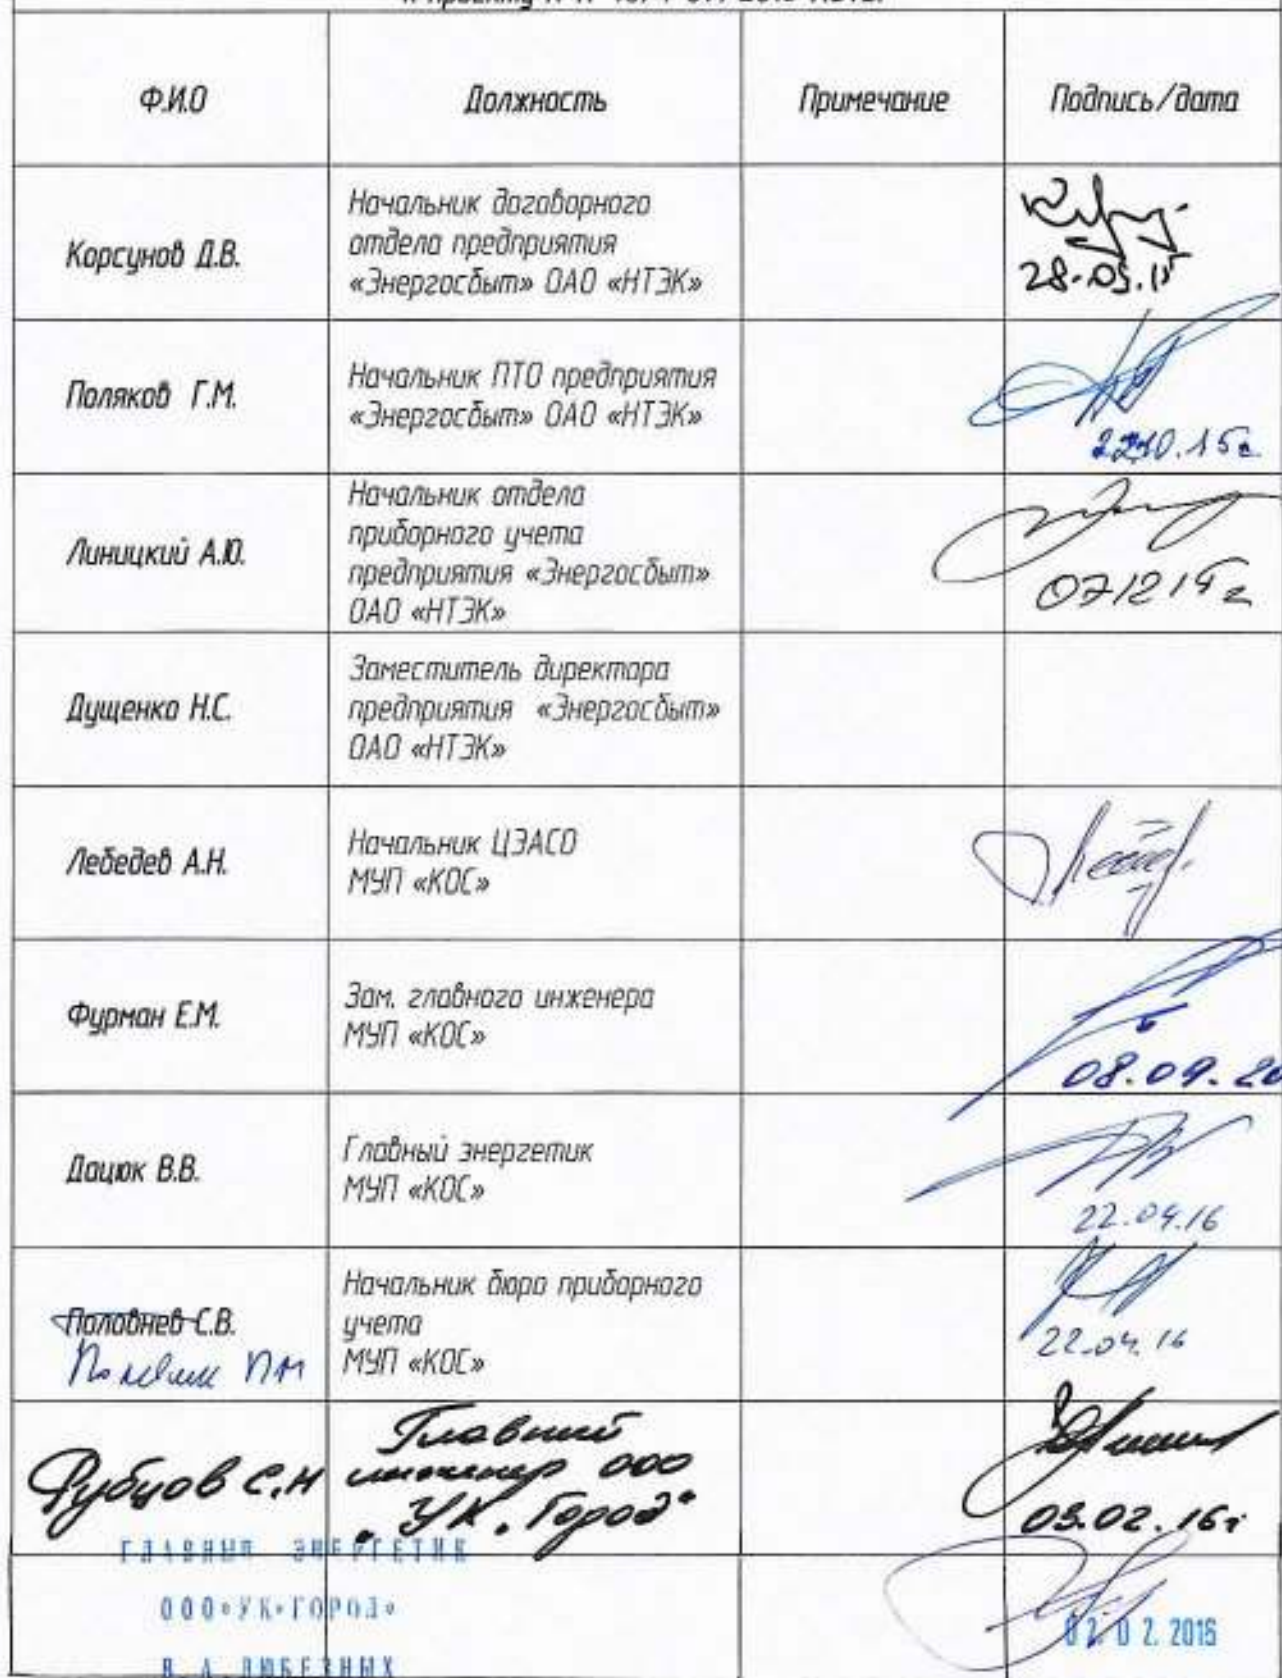 Ф.И.О
Должность
Примечание
Подпись/дата
Корсунов Д.В.
Начальник договорного
отдела предприятия
«Энергосбыт» ОАО «НТЭК»
Поляков Г.М.
Начальник ПТО предприятия
«Энергосбыт» ОАО «НТЭК»
Линицкий А.Ю.
Начальник отдела
приборного учета
предприятия «Энергосбыт»
ОАО «НТЭК»
Дущенко Н.С.
Заместитель директора
предприятия «Энергосбыт»
ОАО «НТЭК»
Лебедев А.Н.
Начальник ЦЭАСО
МУП «КОС»
Фурман Е.М.
Зам. главного инженера
МУП «КОС»
08.09.20
Дацюк В.В.
Главный энергетик
МУП «КОС»
22.04.16
Половнев С.В.
Начальник бюро приборного
учета
МУП «КОС»
22.04.16
Рубцов С.Н
Главный
инженер ООО
"УК. Город"
03.02.16г
ГЛАВНЫЙ ЭНЕРГЕТИК
ООО«УК«ГОРОД»
В.А.ЛЮБЕЗНЫХ
02.2016